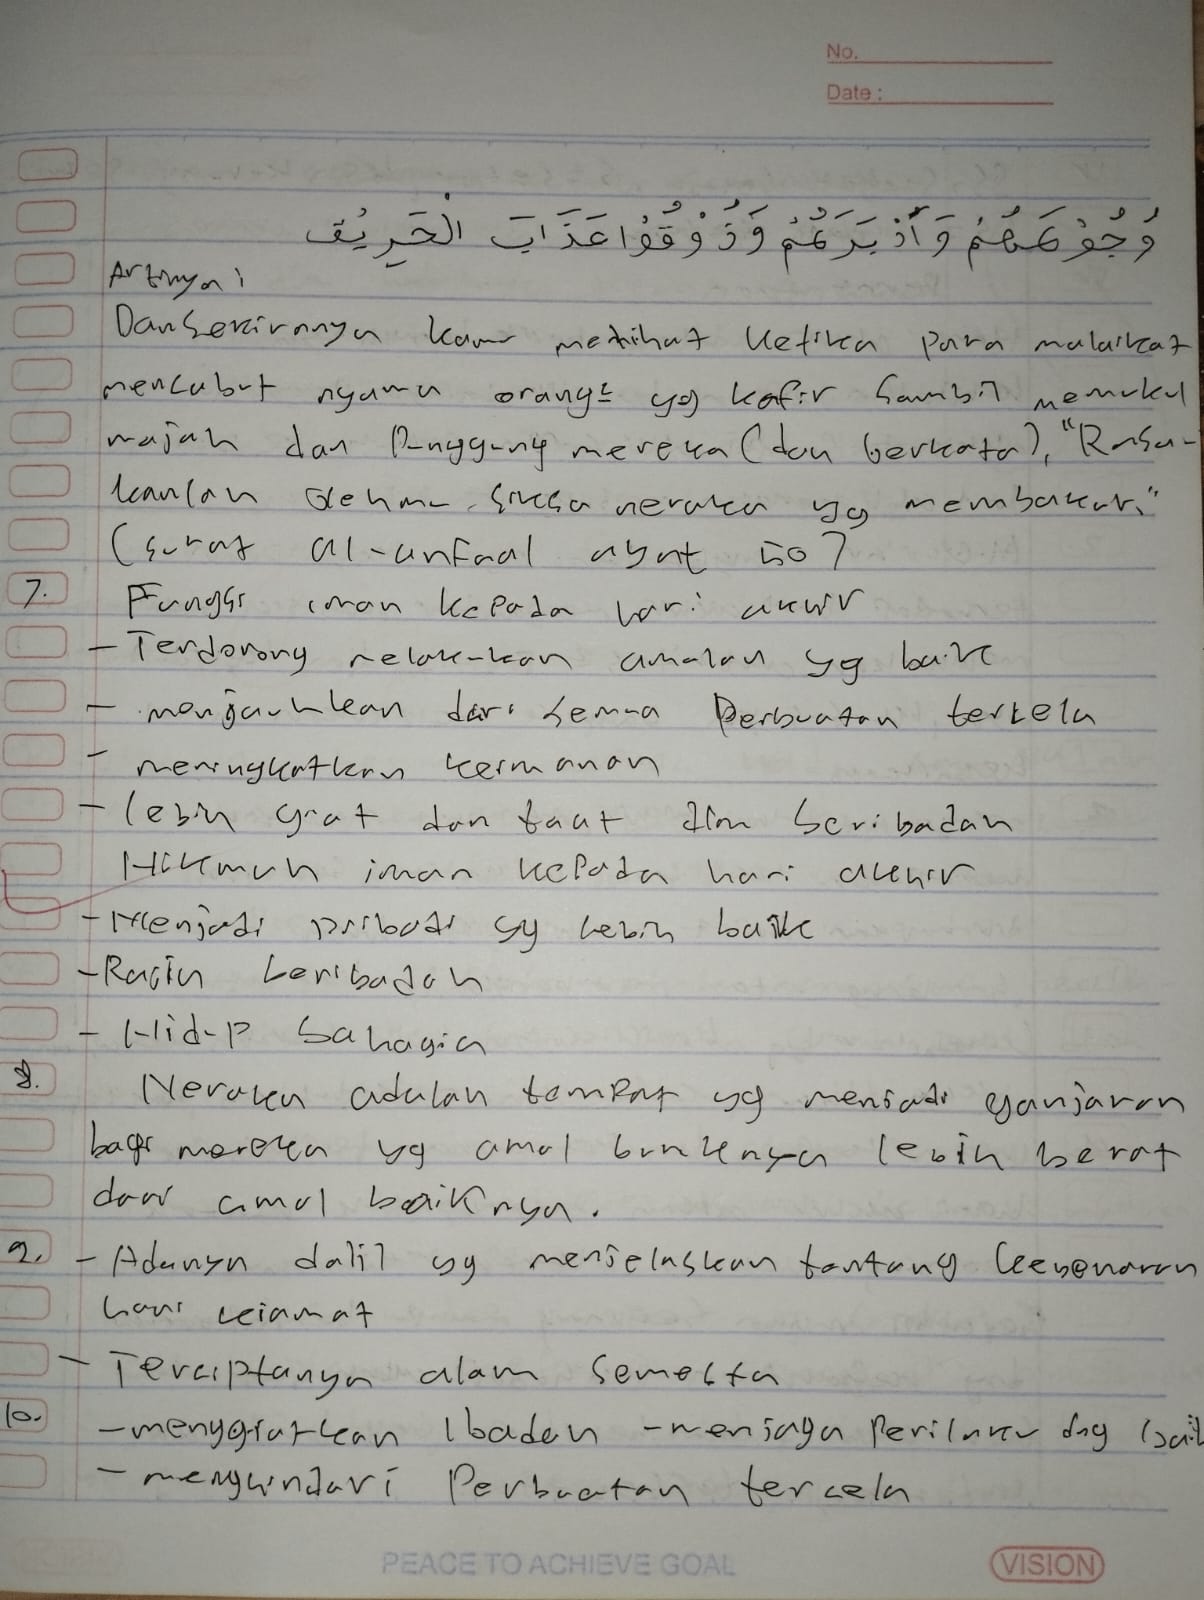 No.
Date :
وُجُوْهَهُمْ وَأَدْبَرَهُمْ وَذُوْقُوْا عَذَابَ الْحَرِيْقِ
Artinya :
Dan sekiranya kamu melihat ketika para malaikat
mencabut nyawa orang2 yg kafir sambil memukul
wajah dan Punggung mereka (dan berkata), "Rasa-
kanlah olehmu siksa neraka yg membakar."
(surat al-anfaal ayat 50)
7. Fungsi iman kepada hari akhir
- Terdorong melakukan amalan yg baik
- menjauhkan dari semua Perbuatan tercela
- meningkatkan keimanan
- lebih giat dan taat dlm beribadah
Hikmah iman kepada hari akhir
- Menjadi pribadi yg lebih baik
- Rajin beribadah
- Hidup bahagia
8. Neraka adalah tempat yg menjadi ganjaran
bagi mereka yg amal buruknya lebih berat
dari amal baiknya.
9. - Adanya dalil yg menjelaskan tentang kebenaran
hari kiamat
- Terciptanya alam semesta
10. - menggiatkan Ibadah - menjaga Perilaku dng baik
- menghindari Perbuatan tercela
PEACE TO ACHIEVE GOAL
VISION